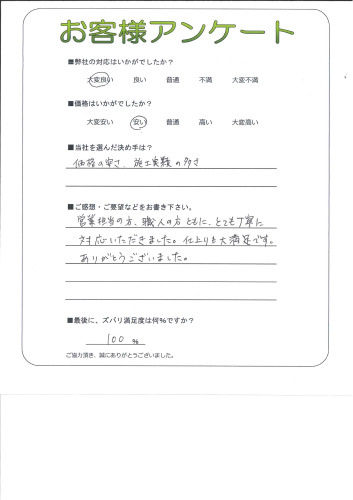 お客様アンケート
■弊社の対応はいかがでしたか?
大変良い 良い 普通 不満 大変不満
■価格はいかがでしたか?
大変安い 安い 普通 高い 大変高い
■当社を選んだ決め手は?
価格の安さ、施工実績の多さ
■ご感想・ご要望などをお書き下さい。
営業担当の方、職人の方ともに、とても丁寧に
対応いただきました。仕上りも大満足です。
ありがとうございました。
■最後に、ズバリ満足度は何%ですか?
100 %
ご協力頂き、誠にありがとうございました。